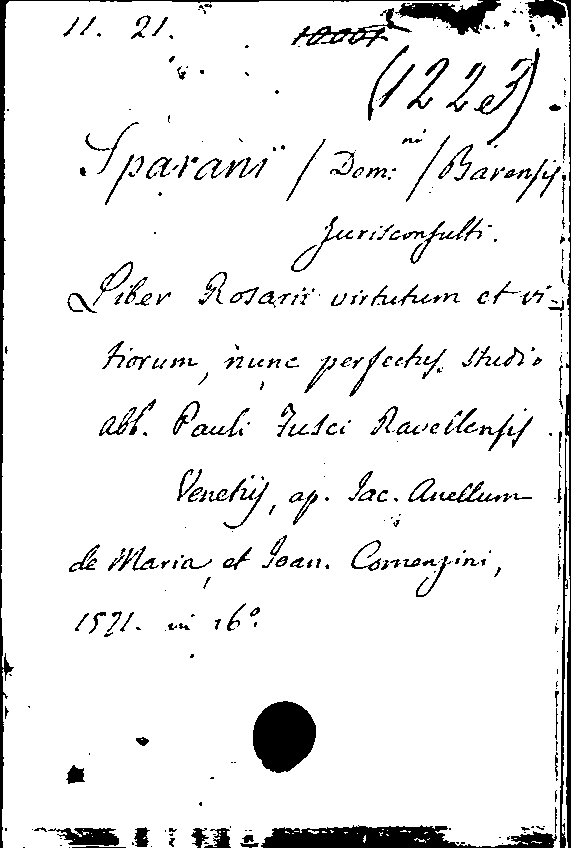 11. 21. 10007
(1223).
Sparani / Dom:ni / Barensis
Jurisconsulti.
Liber Rosarii virtutum et vi-
tiorum, nunc perfectus, studio
abb. Pauli Fusci Ravellensis.
Venetijs, ap. Jac. Anellum
de Maria, et Joan. Comenzini,
1571. in 16°.